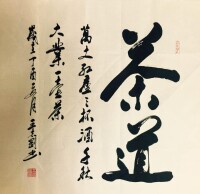 茶道
萬丈紅塵三杯酒千秋
大業一壺茶
歲在丁酉年月